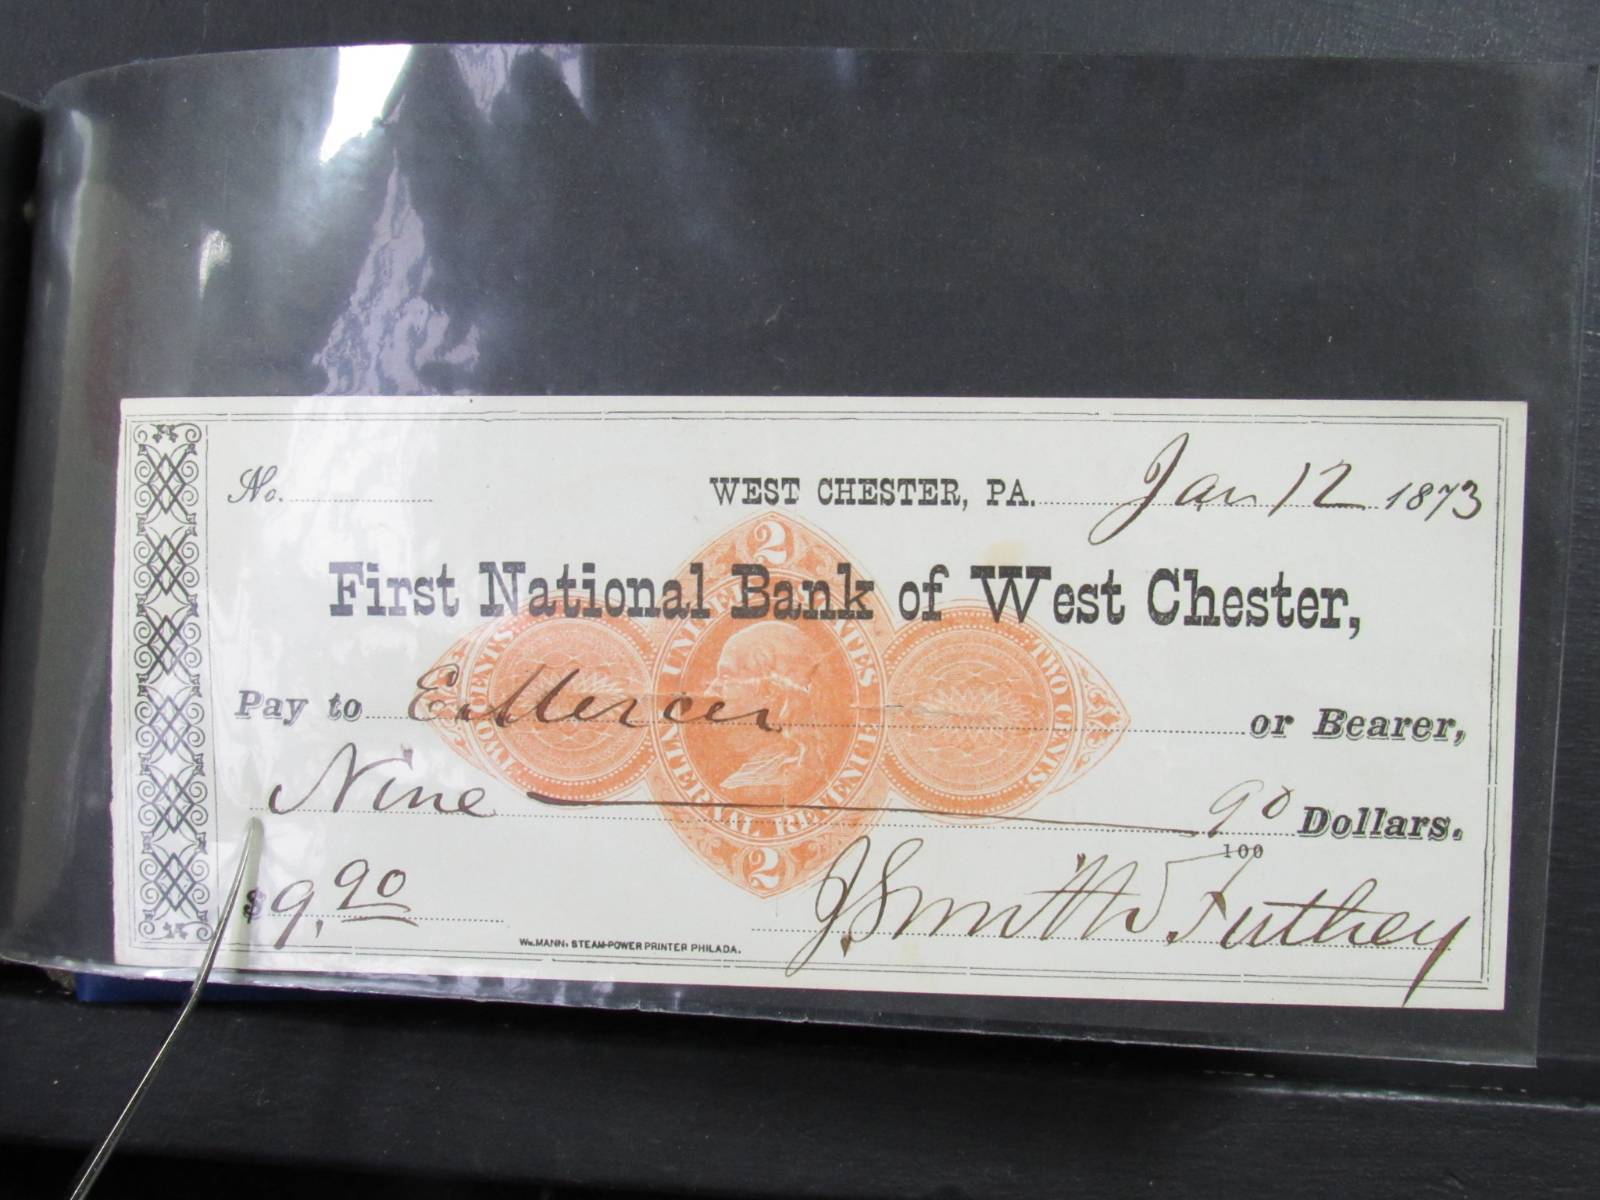 No. WEST CHESTER, PA. Jan 12 1873
First National Bank of West Chester,
Pay to E. Mercer or Bearer,
Nine 90/100 Dollars.
$9.90 J Smith Futhey
Wm. MANN, STEAM-POWER PRINTER PHILADA.
2
UNITED STATES
TWO CENTS.
TWO CENTS.
INTERNAL REVENUE
2